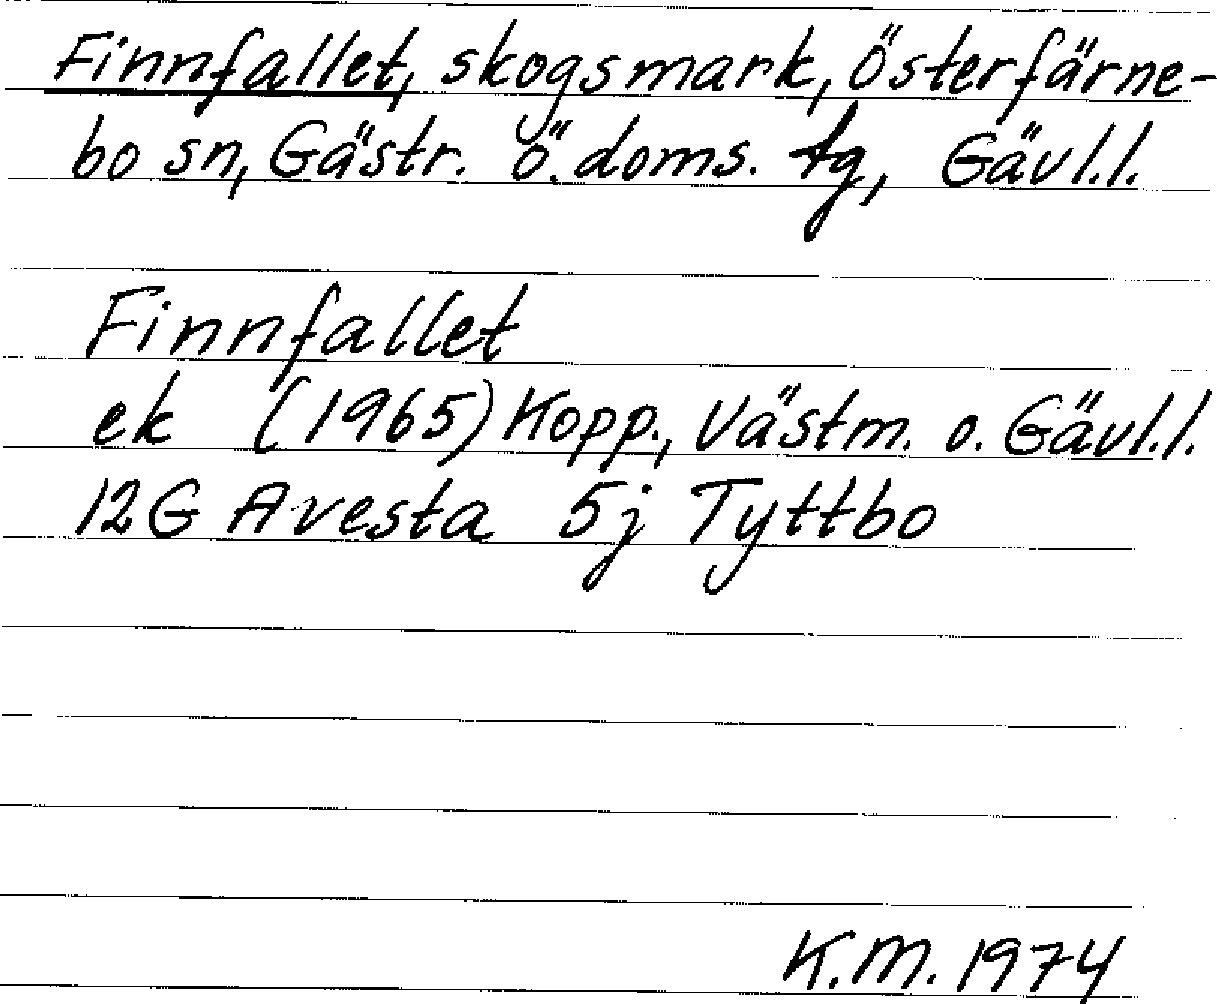 Finnfallet, skogsmark, Österfärne-
bo sn, Gästr. ö. doms. tg, Gävl.l.
Finnfallet
ek (1965) Kopp., Västm. o. Gävl.l.
12G Avesta 5j Tyttbo
K.M. 1974